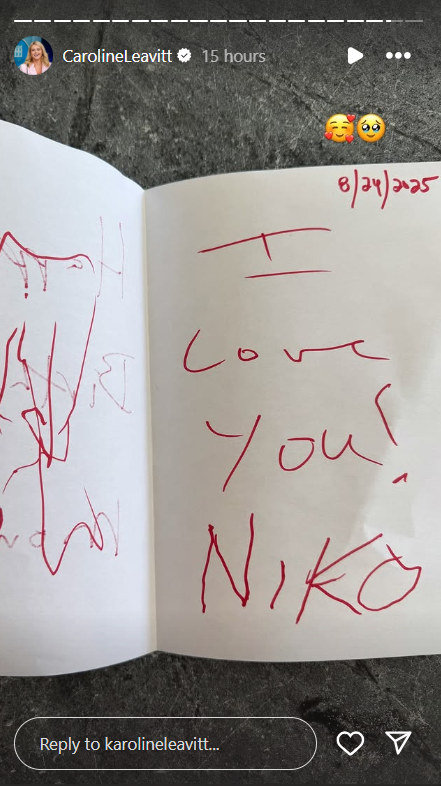 CarolineLeavitt 15 hours
8/24/2025
I
Love
You!
NIKO
Reply to karolineleavitt...